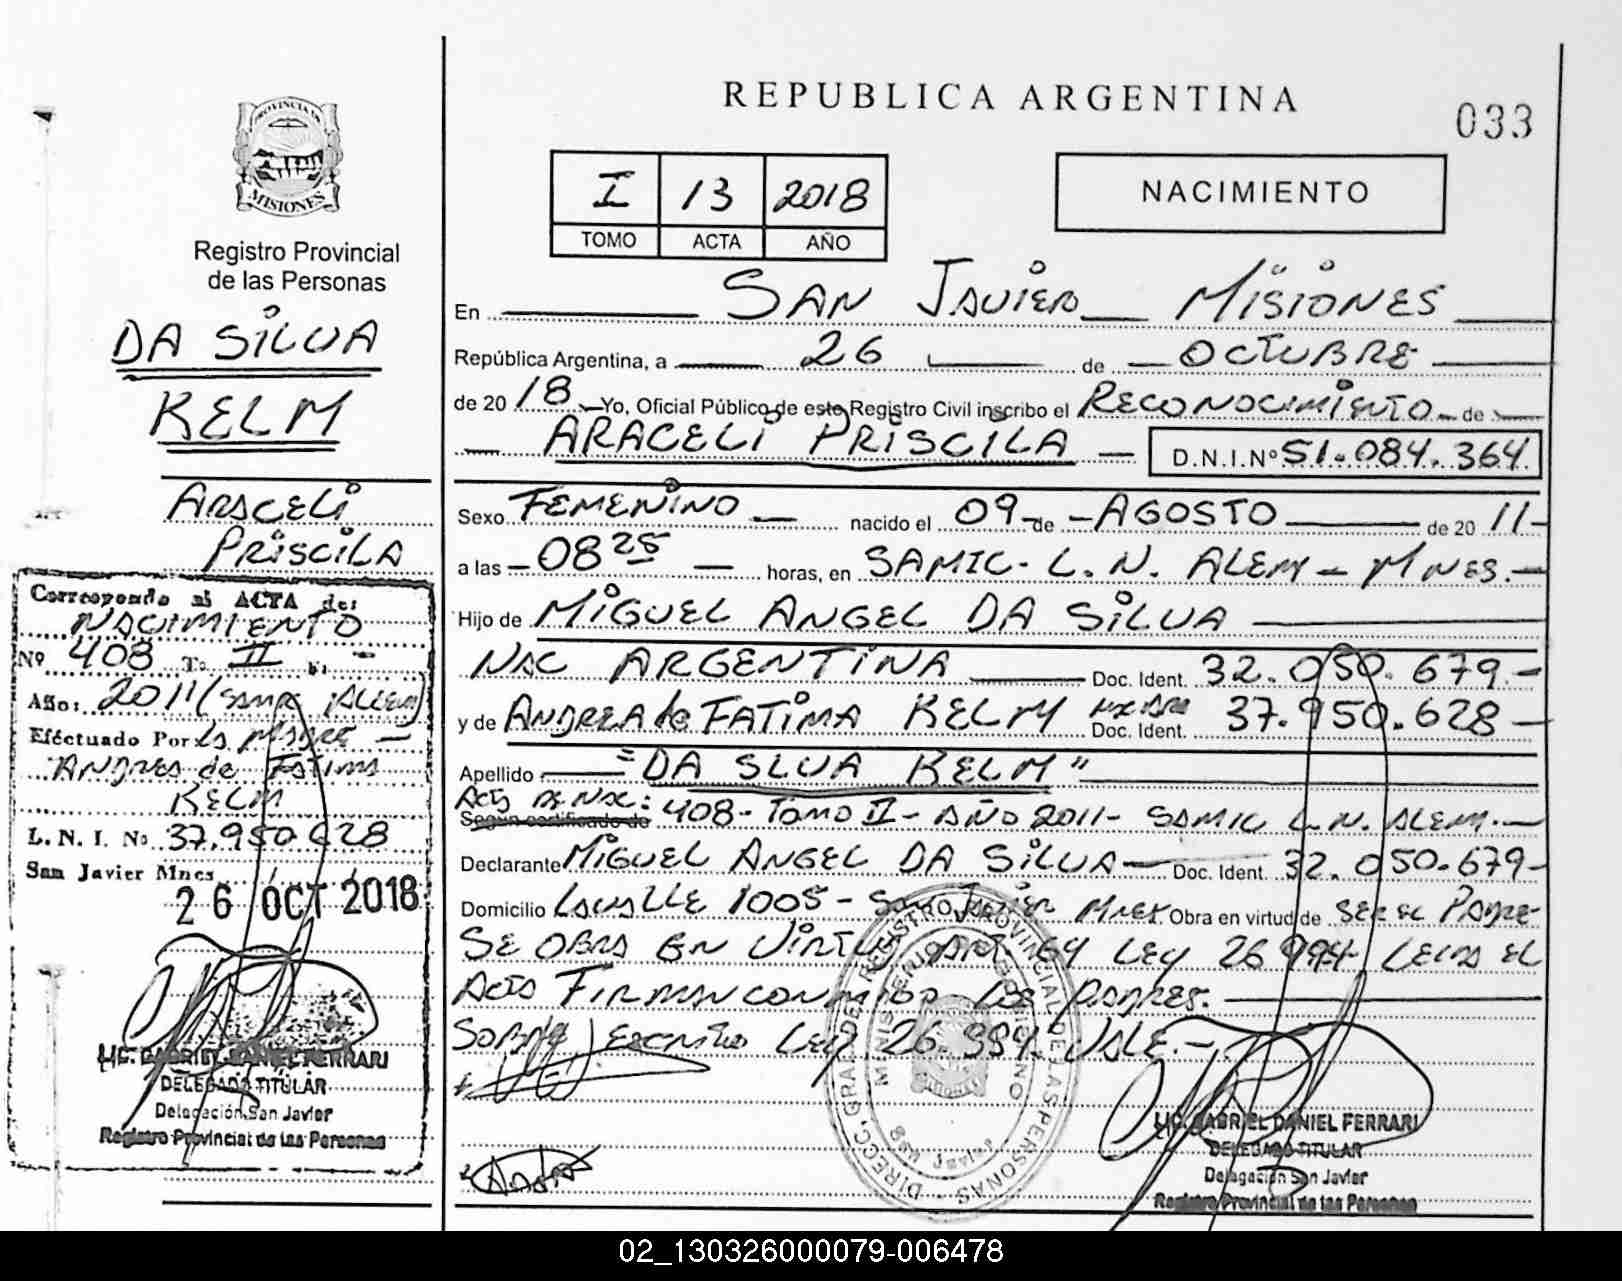 REPUBLICA ARGENTINA
033
PROVINCIA DE
MISIONES
Registro Provincial
de las Personas
DA SILVA
KELM
ARACELI
PRISCILA
Corresponde al ACTA de:
NACIMIENTO
Nº 408 Tº II Fº -
Año: 2011 (SAMIC ALEM)
Eféctuado Por La MADRE -
ANDREA de FATIMA
KELM
L. N. I. No 37.950.628
San Javier Mnes
26 OCT 2018
LIC. GABRIEL DANIEL FERRARI
DELEGADO TITULAR
Delegación San Javier
Registro Provincial de las Personas
I 13 2018
TOMO ACTA AÑO
NACIMIENTO
En SAN JAVIER MISIONES
República Argentina, a 26 de OCTUBRE
de 20 18 Yo, Oficial Público de este Registro Civil inscribo el RECONOCIMIENTO de
ARACELI PRISCILA D.N.I.Nº 51.084.364
Sexo FEMENINO nacido el 09 de AGOSTO de 20 11
a las 08 25 horas, en SAMIC - L. N. ALEM - MNES.
Hijo de MIGUEL ANGEL DA SILVA
NAC ARGENTINA Doc. Ident. 32.050.679.-
y de ANDREA de FATIMA KELM Doc. Ident. 37.950.628 -
Apellido "DA SLVA KELM"
ACTA DE NAC: 408 - TOMO II - AÑO 2011 - SAMIC L.N. ALEM.-
Según certificado de
Declarante MIGUEL ANGEL DA SILVA Doc. Ident. 32.050.679-
Domicilio LAVALLE 1005 - SAN JAVIER MNES Obra en virtud de SER EL PADRE
SE OBRA EN VIRTUD ART 64 LEY 26994 LEIDA EL
ACTA FIRMAN CONMIGO LOS PADRES.
SOBRE ESCRITO LEY 26.994 VALE.-
DIREC. GRAL. DEL REGISTRO PROVINCIAL DE LAS PERSONAS
LIC. GABRIEL DANIEL FERRARI
DELEGADO TITULAR
Delegación San Javier
Registro Provincial de las Personas
02_130326000079-006478